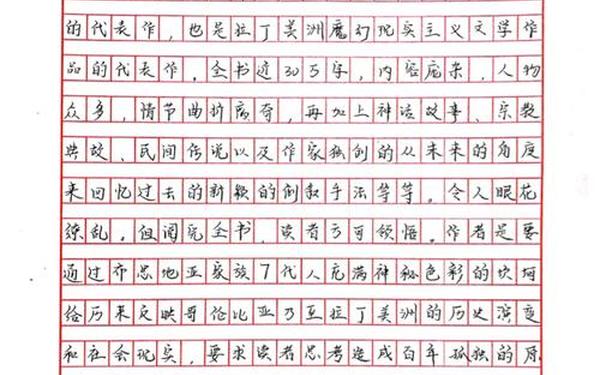 的代表作，也是拉丁美洲魔幻现实主义文学作
品的代表作。全书近30万字，内容庞杂，人物
众多，情节曲折离奇，再加上神话故事、宗教
典故、民间传说以及作家独创的从未来的角度
来回忆过去的新颖的倒叙手法等等，令人眼花
缭乱。但阅完全书，读者方可领悟，作者是要
通过布恩地亚家族7代人充满神秘色彩的坎坷
经历来反映哥伦比亚乃至拉丁美洲的历史演变
和社会现实，要求读者思考造成百年孤独的原